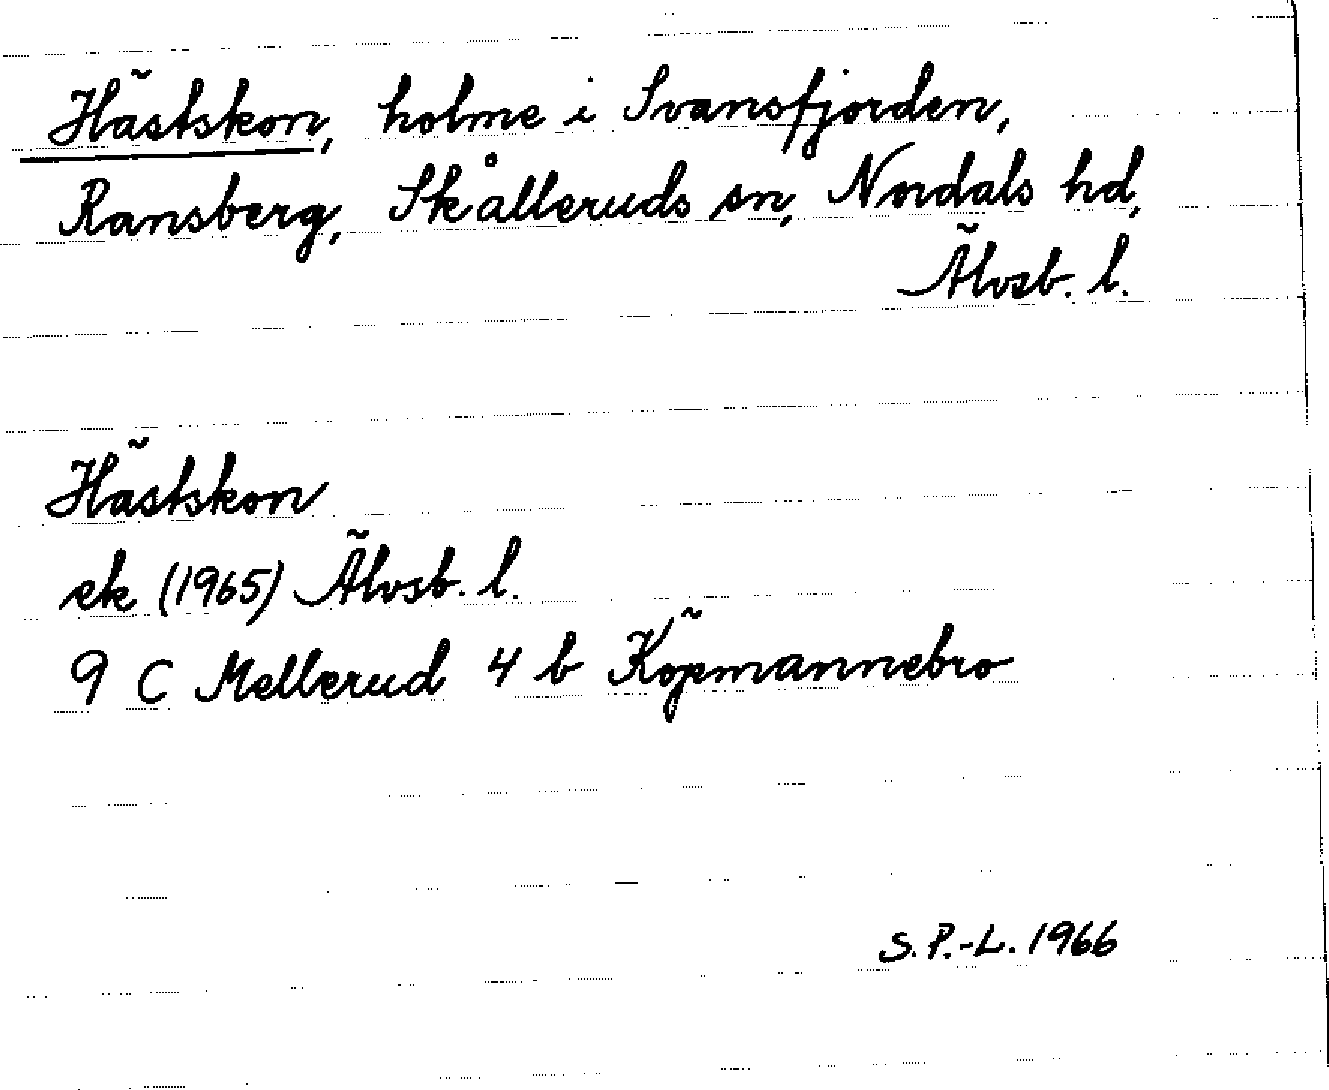 Hästskon, holme i Svansfjorden,
Ransberg, Skålleruds sn, Nordals hd,
Älvsb. l.
Hästskon
ek (1965) Älvsb. l.
9 C Mellerud 4 b Köpmannebro
S. P.-L. 1966